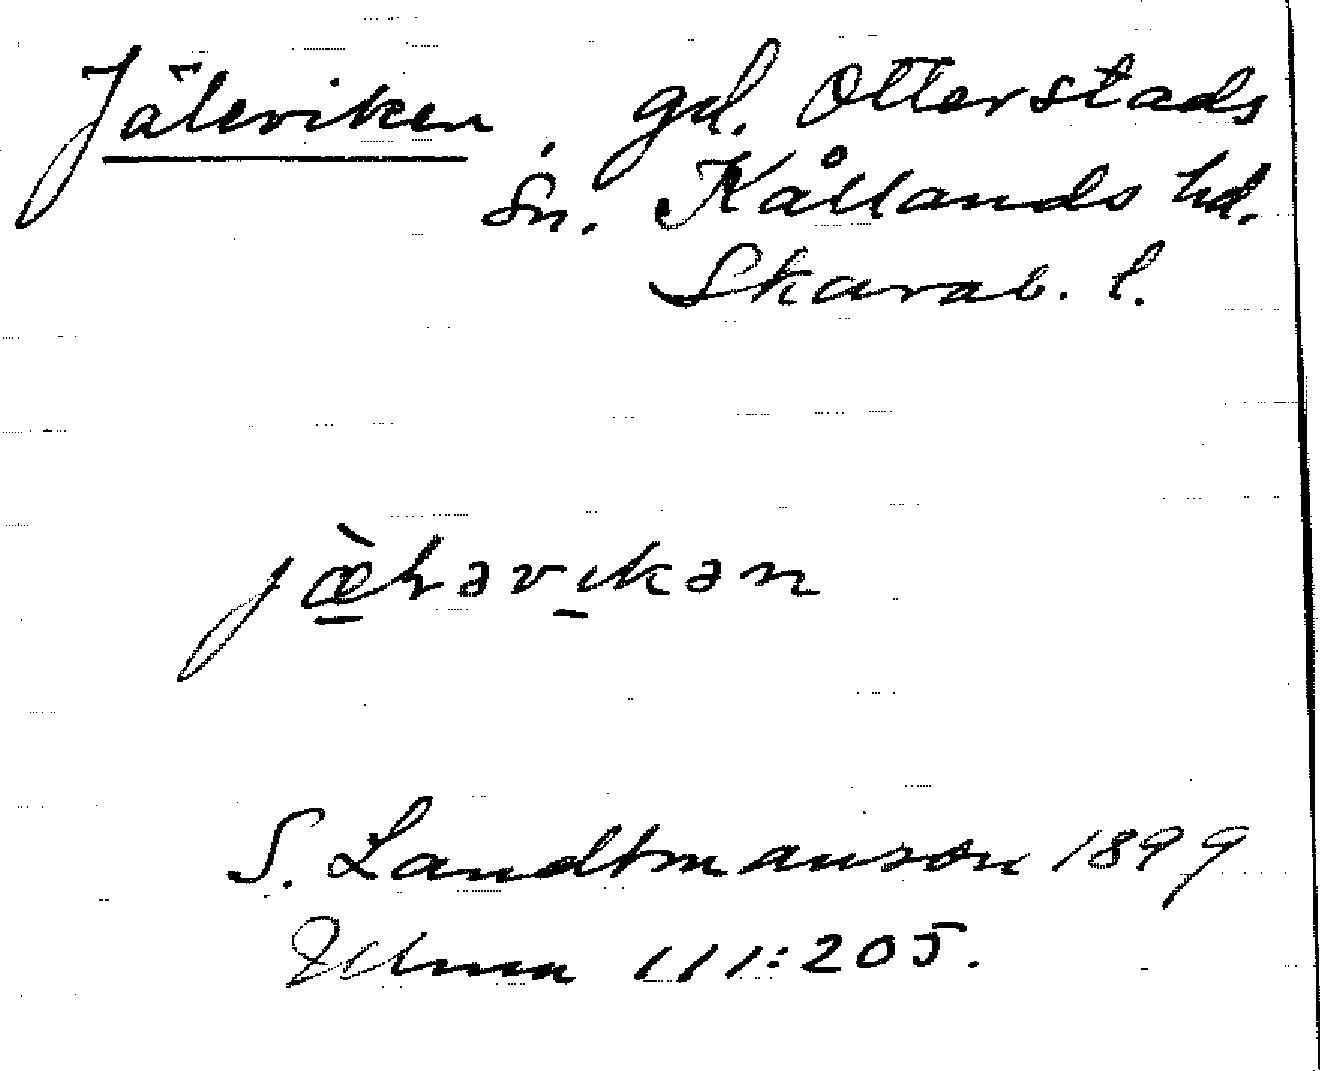 Jäleviken, gd. Otterstads
sn. Kållands hd.
Skarab. l.
jæ̀ləvikən
S. Landtmanson 1899
Ulma 111:205.